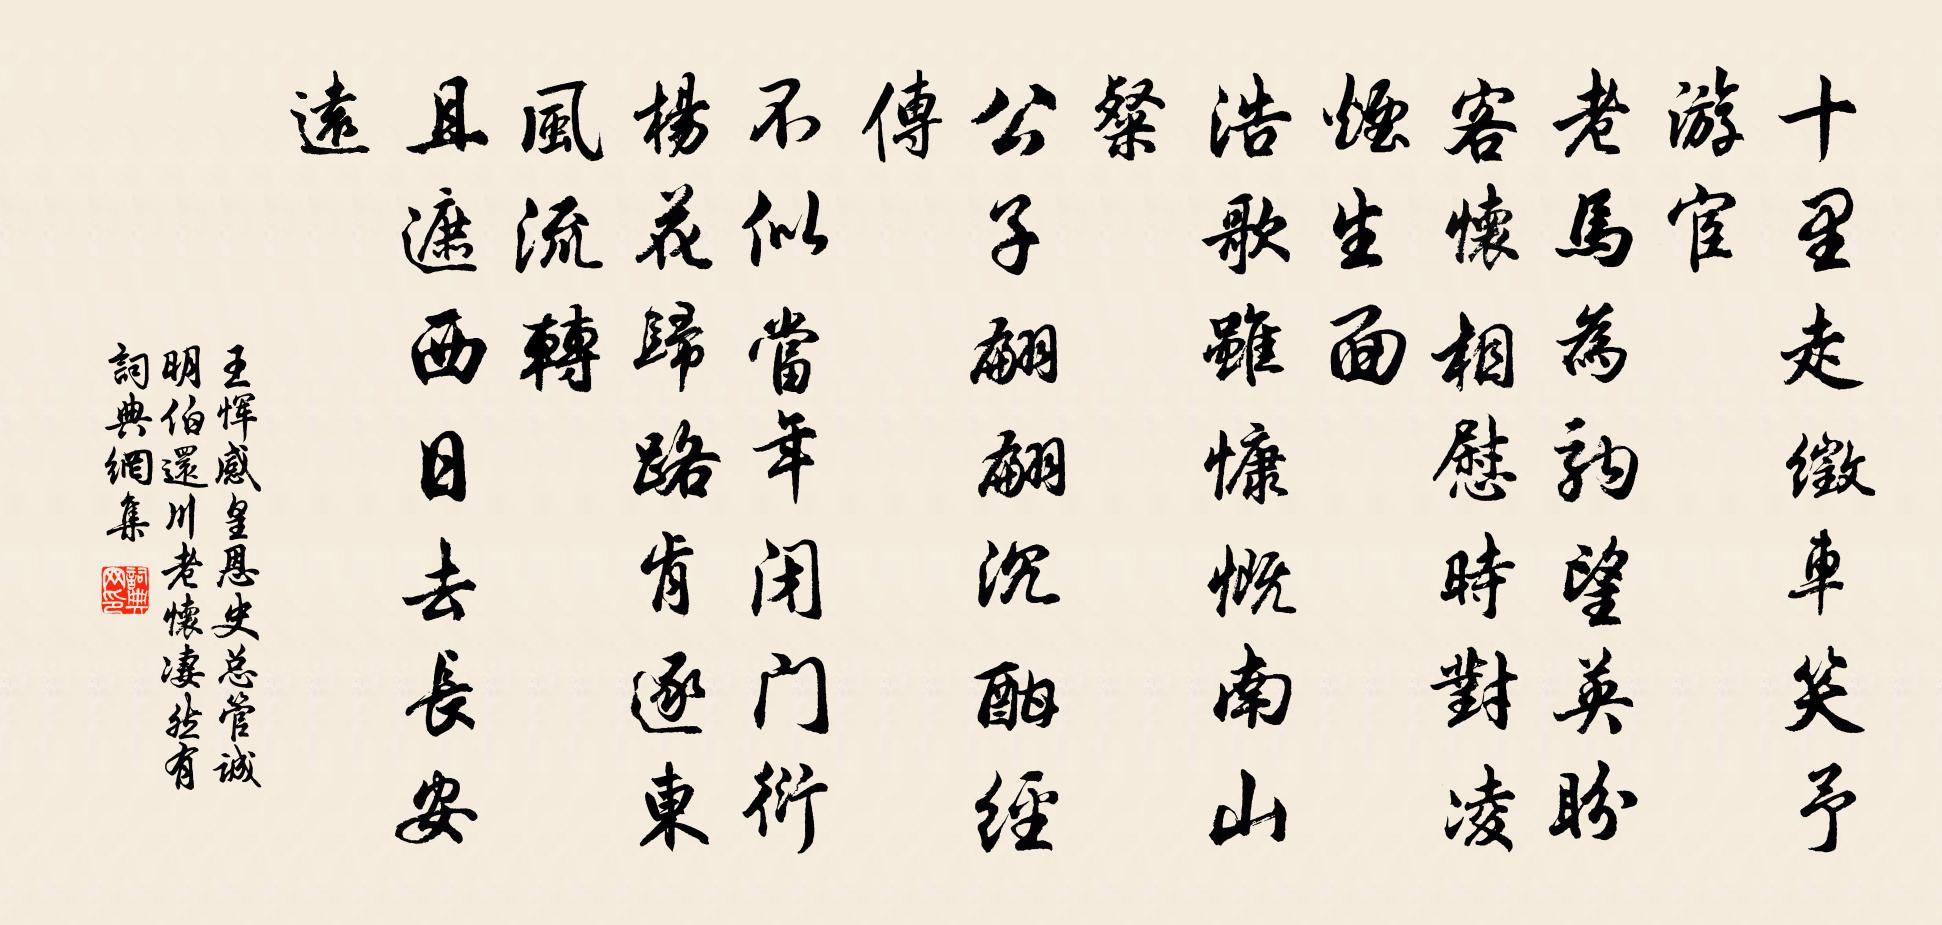 十里走徵車笑予
游宦
老馬為駒望英盼
客懷相慰時對凌
煙生面
浩歌雖慷慨南山
粲
公子翩翩沉酣經
傳
不似當年闭门衍
楊花歸路肯逐東
風流轉
且遮西日去長安
遠
王恽感皇恩史总管诚
明伯還川老懷凄然有
詞典網集
詞典网印